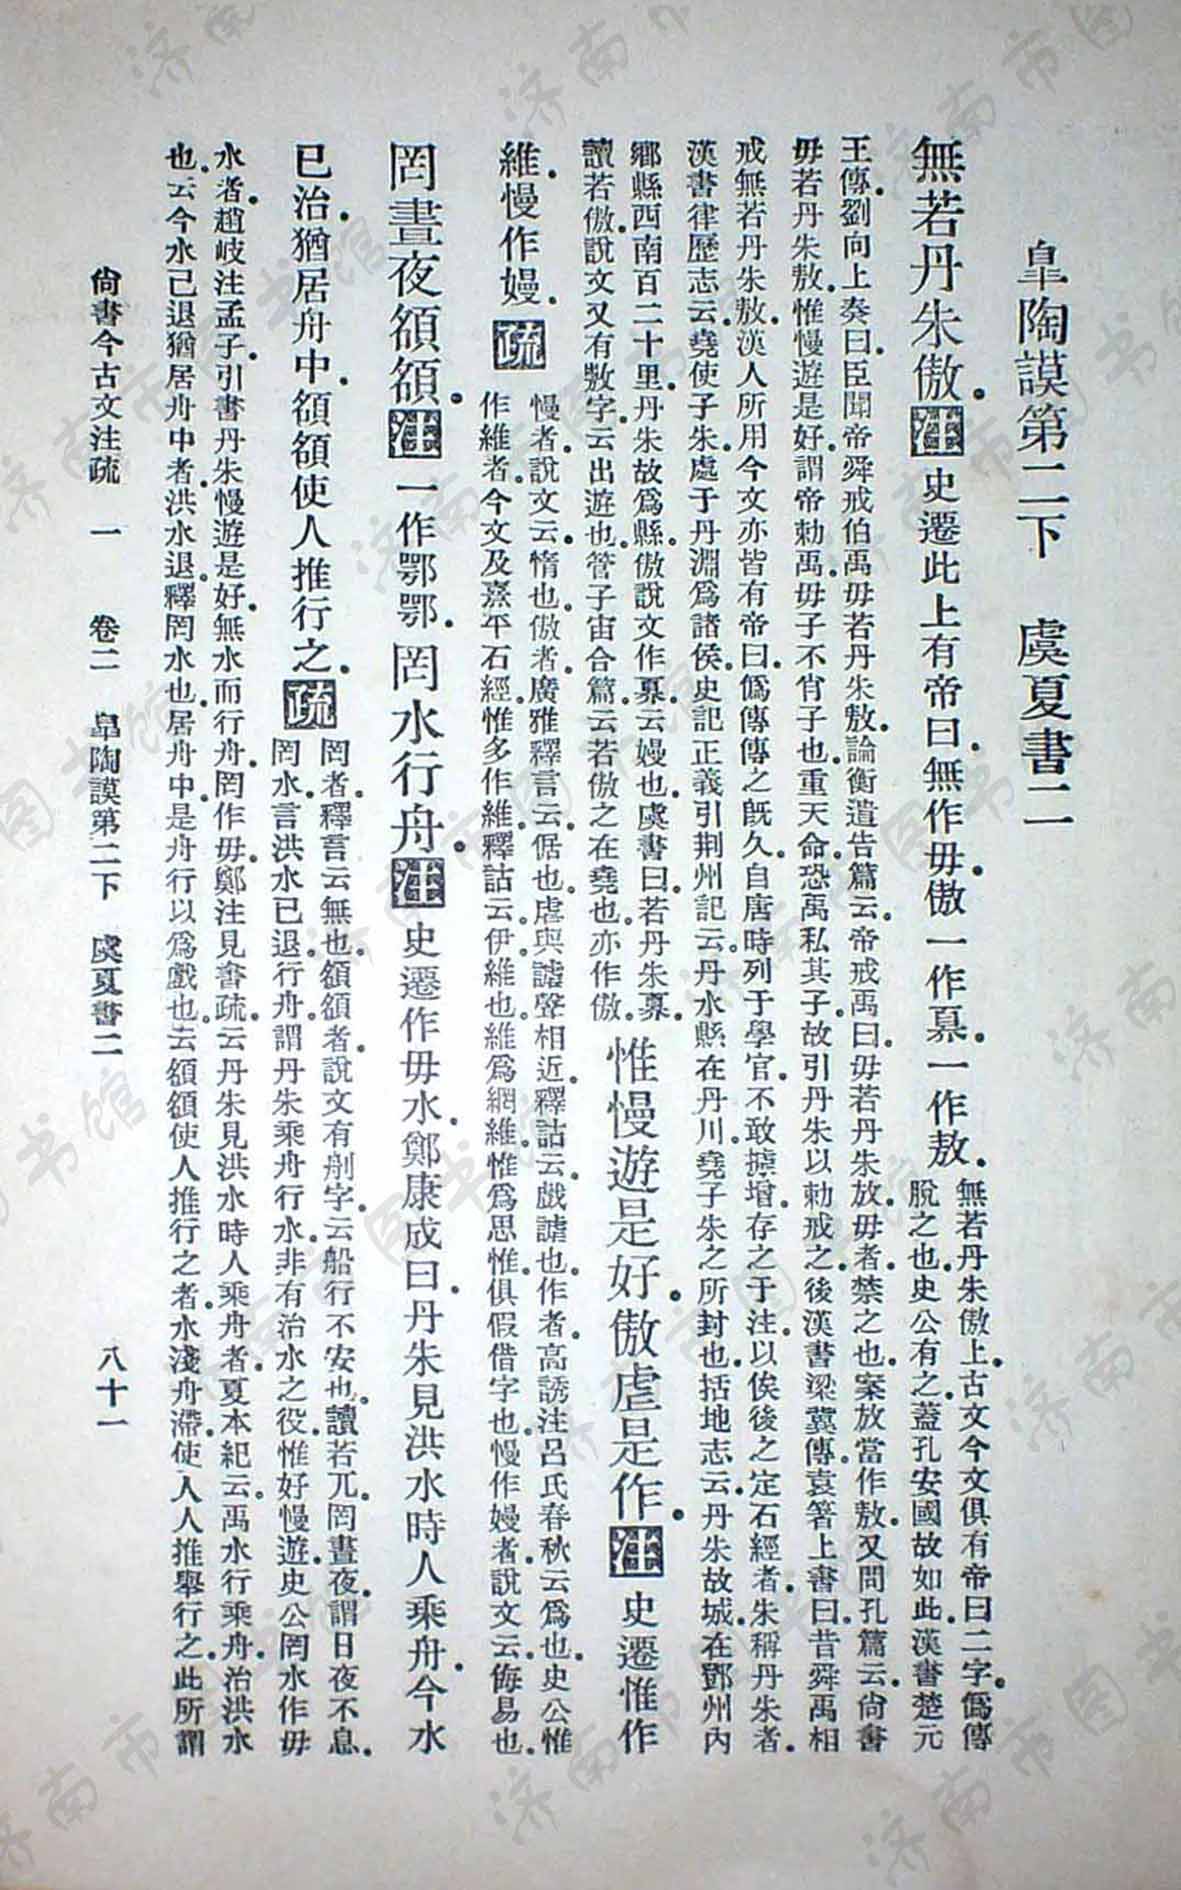 皐陶謨第二下　虞夏書二
無若丹朱傲。注史遷此上有帝曰。無作毋。傲一作奡。一作敖。
無若丹朱傲上。古文今文俱有帝曰二字。僞傳
脫之也。史公有之。蓋孔安國故如此。漢書楚元
王傳。劉向上奏曰。臣聞帝舜戒伯禹毋若丹朱敖。論衡遣告篇云。帝戒禹曰。毋若丹朱放。毋者。禁之也。案放當作敖。又問孔篇云。尙書
毋若丹朱敖。惟慢遊是好。謂帝勑禹。毋子不肖子也。重天命。恐禹私其子。故引丹朱以勑戒之。後漢書梁冀傳。袁箸上書曰。昔舜禹相
戒無若丹朱敖。漢人所用今文亦皆有帝曰。僞傳傳之旣久。自唐時列于學官。不敢㨿增。存之于注。以俟後之定石經者。朱稱丹朱者。
漢書律歷志云。堯使子朱。處于丹淵爲諸侯。史記正義引荆州記云。丹水縣在丹川。堯子朱之所封也。括地志云。丹朱故城。在鄧州內
鄉縣西南百二十里。丹朱故爲縣。傲說文作奡。云嫚也。虞書曰。若丹朱奡。
讀若傲。說文又有敖字。云出遊也。管子宙合篇。云若傲之在堯也。亦作傲。
惟慢遊是好。傲虐是作。注史遷惟作
維。慢作嫚。疏
慢者。說文云。惰也。傲者。廣雅釋言云。倨也。虐與謔聲相近。釋詁云。戲謔也。作者。高誘注呂氏春秋云。爲也。史公惟
作維者。今文及熹平石經。惟多作維。釋詁云。伊。維也。維爲綱維。惟爲思惟。俱假借字也。慢作嫚者。說文云。侮易也。
罔晝夜頟頟。注一作鄂鄂。罔水行舟。注史遷作毋水。鄭康成曰。丹朱見洪水時人乘舟。今水
已治。猶居舟中。頟頟使人推行之。疏
罔者。釋言云。無也。頟頟者。說文有刖字。云船行不安也。讀若兀。罔晝夜。謂日夜不息。
罔水。言洪水已退。行舟。謂丹朱乘舟行水。非有治水之役。惟好慢遊。史公罔水作毋
水者。趙岐注孟子。引書丹朱慢遊是好。無水而行舟。罔作毋。鄭注見書疏。云丹朱見洪水時人乘舟者。夏本紀云。禹水行乘舟。治洪水
也。云今水已退猶居舟中者。洪水退。釋罔水也。居舟中。是舟行以爲戲也。云頟頟使人推行之者。水淺舟滯。使人人推舉行之。此所謂
尙書今古文注疏　一　卷二　皐陶謨第二下　虞夏書二　八十一